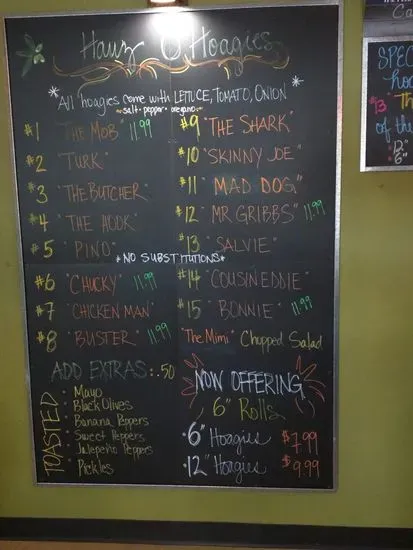 Hauz O'Hoagies
*All hoagies come with LETTUCE, TOMATO, ONION*
~salt·pepper·oregano~
#1 "THE MOB" 11.99
#2 "TURK"
#3 "THE BUTCHER"
#4 "THE HOOK"
#5 "PINO"
#9 "THE SHARK"
#10 "SKINNY JOE"
#11 "MAD DOG"
#12 "MR GRIBBS" 11.99
#13 "SALVIE"
*NO SUBSTITUTIONS*
#6 "CHUCKY" 11.99
#7 "CHICKEN MAN"
#8 "BUSTER" 11.99
#14 "COUSIN EDDIE"
#15 "BONNIE" 11.99
"The Mimi" Chopped Salad
ADD EXTRAS: .50
TOASTED
· Mayo
· Black Olives
· Banana Peppers
· Sweet Peppers
· Jalepeño Peppers
· Pickles
NOW OFFERING
6" Rolls
·6" Hoagies $7.99
·12" Hoagies $9.99
Ca
SPEC
ho
#13 "Th
of th
12"
6"